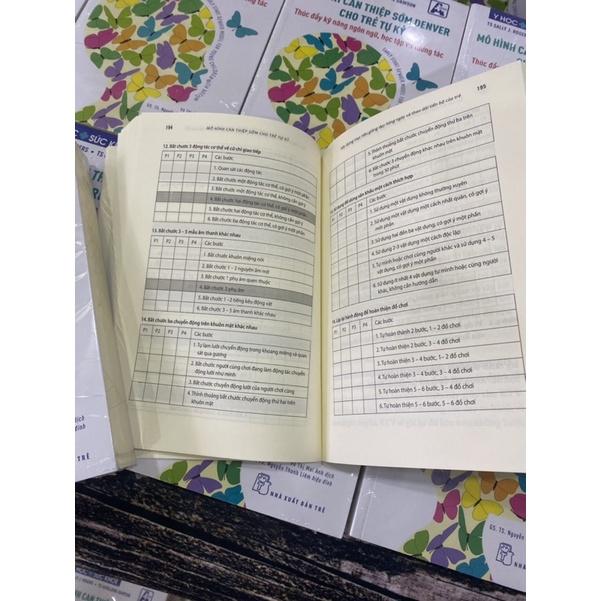 CAN THIỆP SỚM DENVER
CHO TRẺ TỰ KỶ
Thúc đẩy kỹ năng ngôn ngữ, học tập và tương tác
Y HỌC
TS SALLY J. ROGERS
MÔ HÌNH CAN
Thúc đẩy kỹ năng
194
MÔ HÌNH CAN THIỆP SỚM CHO TRẺ TỰ KỶ
12. Bắt chước 3 động tác cơ thể về cử chỉ giao tiếp
P1 P2 P3 P4 Các bước
1. Quan sát các động tác
2. Bắt chước một động tác cơ thể, có gợi ý một phần
3. Bắt chước một động tác cơ thể, không cần gợi ý
4. Bắt chước hai động tác cơ thể, có gợi ý một phần
5. Bắt chước hai động tác cơ thể, không cần gợi ý
6. Bắt chước ba động tác cơ thể, có gợi ý một phần
13. Bắt chước 3 – 5 mẫu âm thanh khác nhau
P1 P2 P3 P4 Các bước
1. Bắt chước khuôn miệng nói
2. Bắt chước 1 – 2 nguyên âm mới
3. Bắt chước 1 phụ âm quen thuộc
4. Bắt chước 2 phụ âm
5. Bắt chước 1 – 2 tiếng kêu động vật
6. Bắt chước 3 – 5 âm thanh khác nhau
14. Bắt chước ba chuyển động trên khuôn mặt khác nhau
P1 P2 P3 P4 Các bước
1. Tự làm lưỡi chuyển động trong khoang miệng và quan
sát qua gương
2. Bắt chước người cùng chơi đang làm động tác chuyển
động lưỡi như mình
3. Bắt chước chuyển động lưỡi của người chơi cùng
4. Thỉnh thoảng bắt chước chuyển động thứ hai trên
khuôn mặt
195
5. Thỉnh thoảng bắt chước chuyển động thứ ba trên
khuôn mặt
6. Bắt chước 3 chuyển động khác nhau trên khuôn mặt
trong 30 phút
Các bước
1. Sử dụng một vật dụng không thường xuyên
2. Sử dụng một vật dụng một cách nhất quán, có gợi ý
một phần
3. Sử dụng hai đến ba vật dụng, có gợi ý một phần
4. Sử dụng 2-3 vật dụng một cách độc lập
5. Tự mình hoặc chơi cùng người khác và sử dụng 4 – 5
vật dụng, có gợi ý một phần
6. Sử dụng ít nhất 4 vật dụng tự mình hoặc cùng người
khác, không cần hướng dẫn
16. Lặp lại hành động để hoàn thiện đồ chơi
P1 P2 P3 P4 Các bước
1. Tự hoàn thành 2 bước, 1 – 2 đồ chơi
2. Tự hoàn thiện 2 bước, 3 – 4 đồ chơi
3. Tự hoàn thiện 3 – 4 bước, 1– 2 đồ chơi
4. Tự hoàn thiện 3 – 4 bước, 3 – 4 đồ chơi
5. Tự hoàn thiện 5 – 6 bước, 3 – 4 đồ chơi
6. Tự hoàn thiện 5 – 6 bước, 5 – 6 đồ chơi
Nguyễn Thanh Liêm hiệu đính
NHÀ XUẤT BẢN TRẺ
GS. TS. Nguyễn